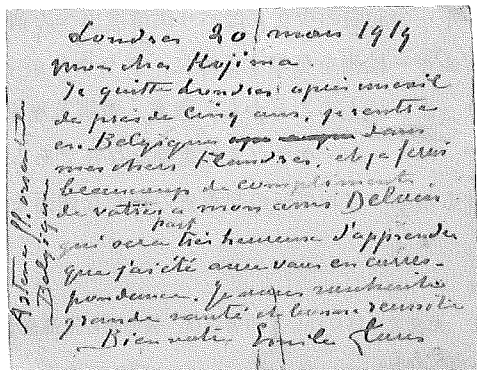 Londres 20 mars 1919
mon cher Kojima
Je quitte Londres après un exil
de près de cinq ans, je rentre
en Belgique dans
mes chers Flandres, et je ferai
beaucoup de compliments
de votre part à mon ami Delvin
qui sera très heureux d'apprendre
que j'ai été avec vous en corres-
pondance. Je vous souhaite
grande santé et bonne réussite
Bien votre Emile Claus
Astene
Belgique